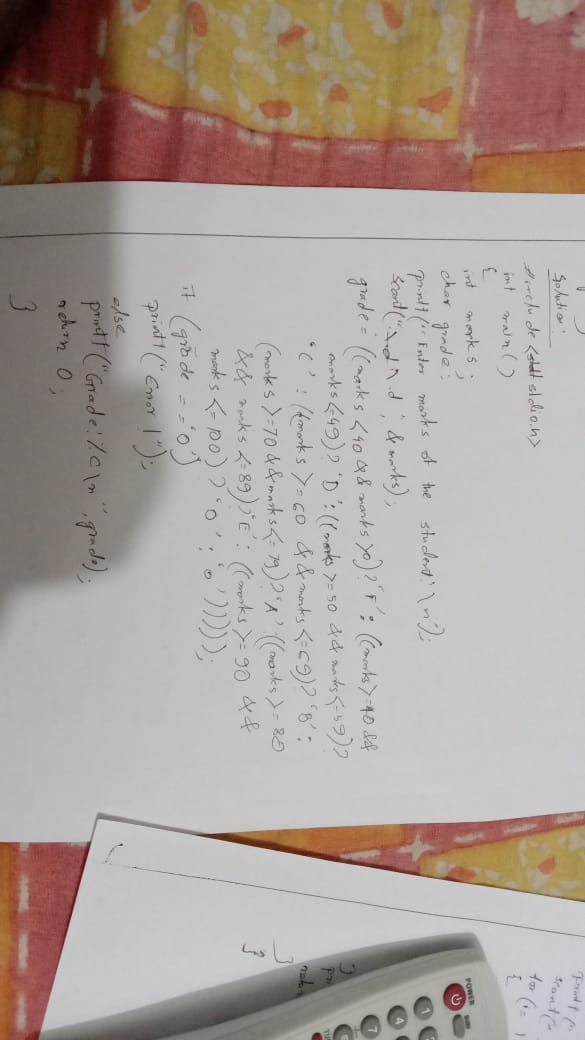 Solution:
#include <stdio.h>
int main()
{
int marks;
char grade;
printf("Enter marks of the student:\n");
scanf("%d", &marks);
grade = ((marks <40 && marks >0)? 'F' : ((marks>=40 &&
marks<=49)? 'D' : ((marks >=50 && marks<=59)?
'C' : ((marks >=60 && marks<=69)? 'B' :
(marks >=70 && marks<=79)? 'A' : ((marks>=80
&& marks <=89)? 'E' : ((marks>=90 &&
marks <=100)? 'O' : '0')))));
if (grade == '0')
printf("Error!");
else
printf("Grade:%c\n", grade);
return 0;
}
printf("
scanf("
for (i= 1
{
}
return
}
}
POWER
1
4
7